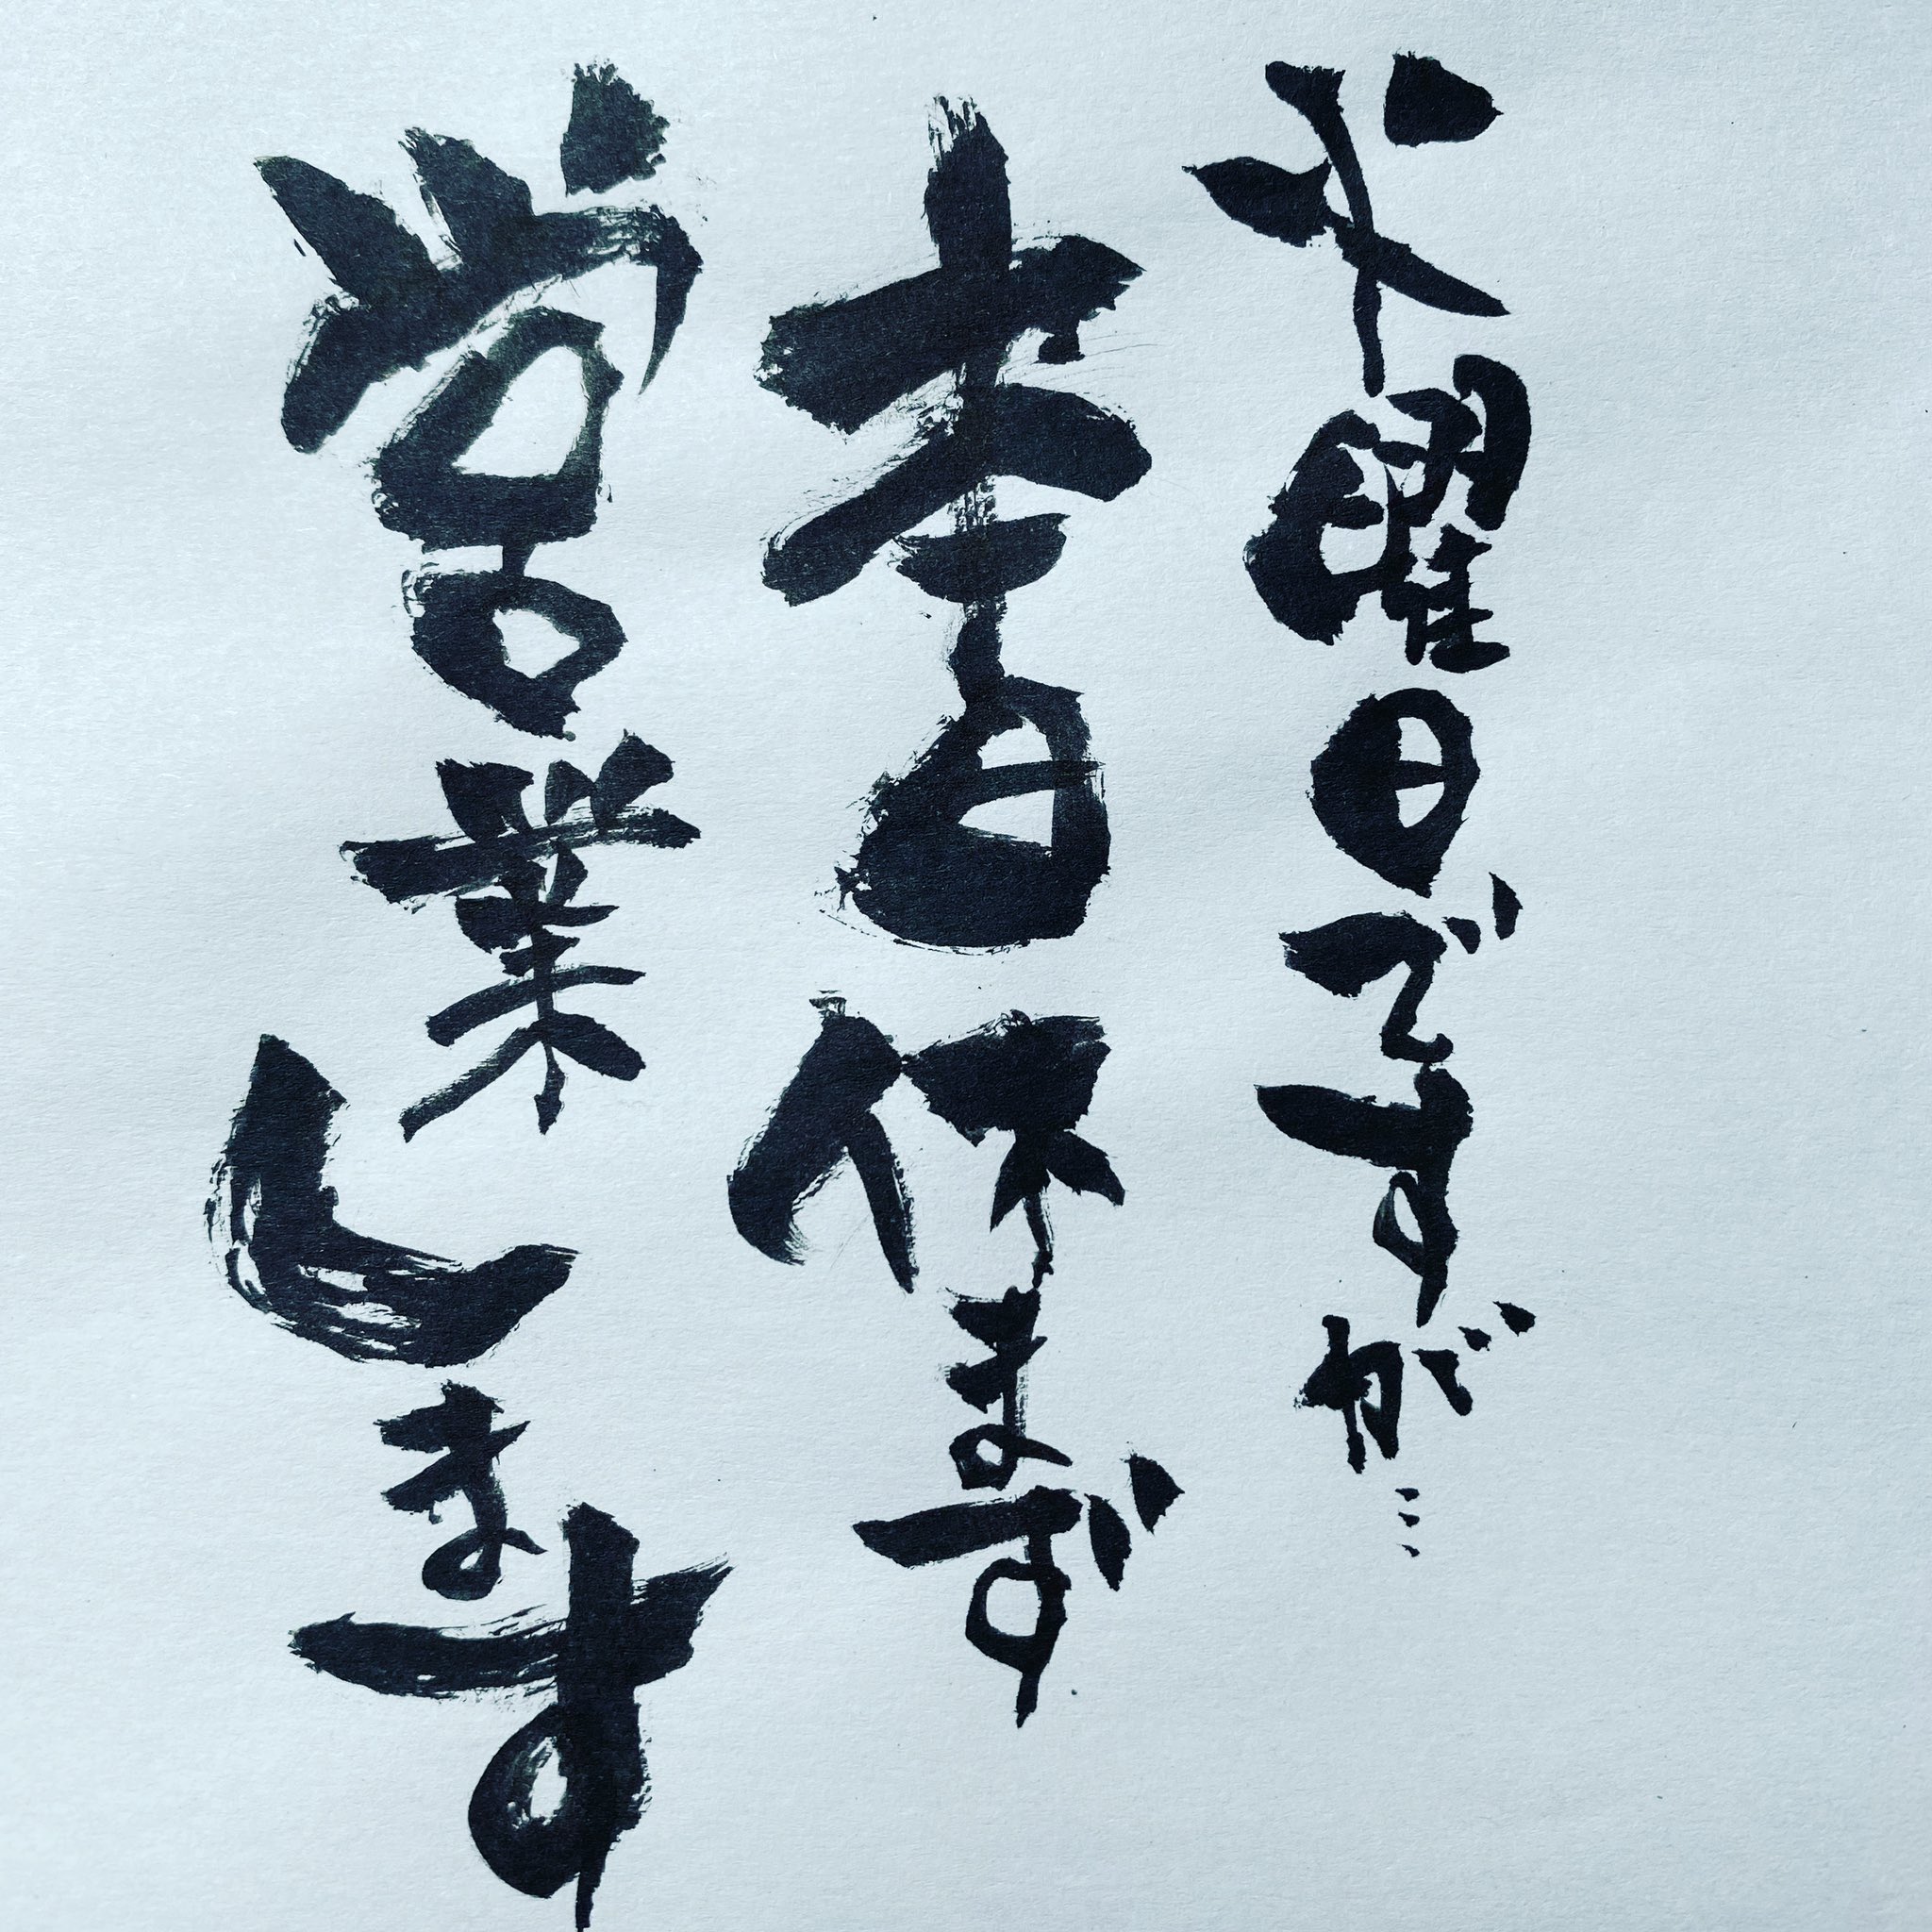 火曜日ですが…
本日休まず
営業します